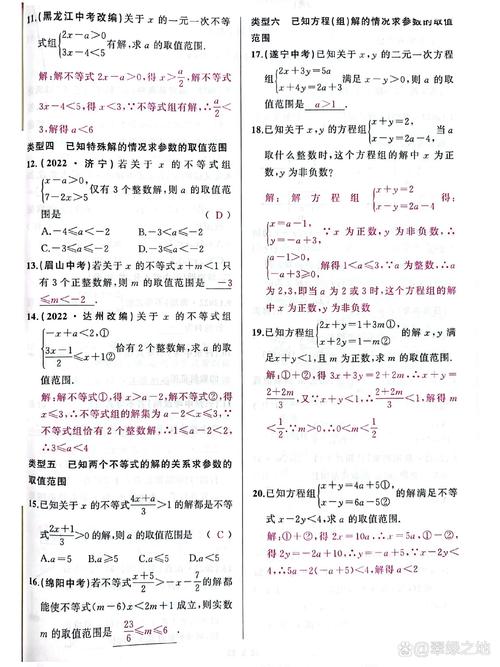 11.(黑龙江中考改编)关于 x 的一元一次不等
式组{2x-a>0
3x-4<5 有解,求 a 的取值范围.
解:解不等式 2x-a>0,得 x>a/2,解不等式
3x-4<5,得 x<3,∵不等式组有解,∴a/2<
3,解得 a<6
类型四 已知特殊解的情况求参数的取值范围
12.(2022·济宁)若关于 x 的不等式组
{x-a>0,
7-2x>5 仅有 3 个整数解,则 a 的取值范
围是 ( D )
A.-4≤a<-2 B.-3<a≤-2
C.-3≤a≤-2 D.-3≤a<-2
13.(眉山中考)若关于 x 的不等式 x+m<1 只
有 3 个正整数解,则 m 的取值范围是 -3
≤m<-2 .
14.(2022·达州改编)关于 x 的不等式组
{-x+a<2,①
3x-1/2≤x+1② 恰有 2 个整数解,求 a 的取
值范围.
解:解不等式①,得 x>a-2,解不等式②,得
x≤3,∴不等式组的解集为 a-2<x≤3,∵
不等式组恰有 2 个整数解,∴1≤a-2<2,
∴3≤a<4
类型五 已知两个不等式的解的关系求参数的
取值范围
15.已知关于 x 的不等式 4x+a/3>1 的解都是不等
式 2x+1/3>0 的解,则 a 的取值范围是 ( C )
A.a=5 B.a≥5 C.a≤5 D.a<5
16.(绵阳中考)若不等式 x+5/2>-x-7/2 的解都
能使不等式(m-6)x<2m+1 成立,则实数
m 的取值范围是 23/6≤m≤6 .
类型六 已知方程(组)解的情况求参数的取值
范围
17.(遂宁中考)已知关于 x,y 的二元一次方程
组{2x+3y=5a
x+4y=2a+3 满足 x-y>0,则 a 的取
值范围是 a>1 .
18.已知关于 x,y 的方程组{x+y=2,
x-y=2a-4, 当 a
取什么整数时,这个方程组的解中 x 为正
数,y 为非负数?
解:解方程组{x+y=2
x-y=2a-4 得:
{x=a-1,
y=-a+3, ∵x 为正数,y 为非负数,∴
{a-1>0,
-a+3≥0, 解得 1<a≤3,∵a 为整数,∴a
为 2,3,即当 a 为 2 或 3 时,这个方程组的解
中 x 为正数,y 为非负数
19.已知方程组{2x+y=1+3m①,
x+2y=1-m② 的解 x,y 满
足 x+y<1,且 m 为正数,求 m 的取值范围.
解:①+②,得 3x+3y=2+2m,∴x+y=
2+2m/3,又∵x+y<1,∴2+2m/3<1,解得 m
<1/2.∵m>0,∴0<m<1/2
20.已知方程组{x+y=4a+5①,
x-y=6a-5② 的解满足不等
式 x-2y<4,求 a 的取值范围.
解:①+②,得 2x=10a.∴x=5a,①-②,
得 2y=-2a+10,∴y=-a+5,∵x-2y<
4,∴5a-2(-a+5)<4,解得 a<2
翠绿之地